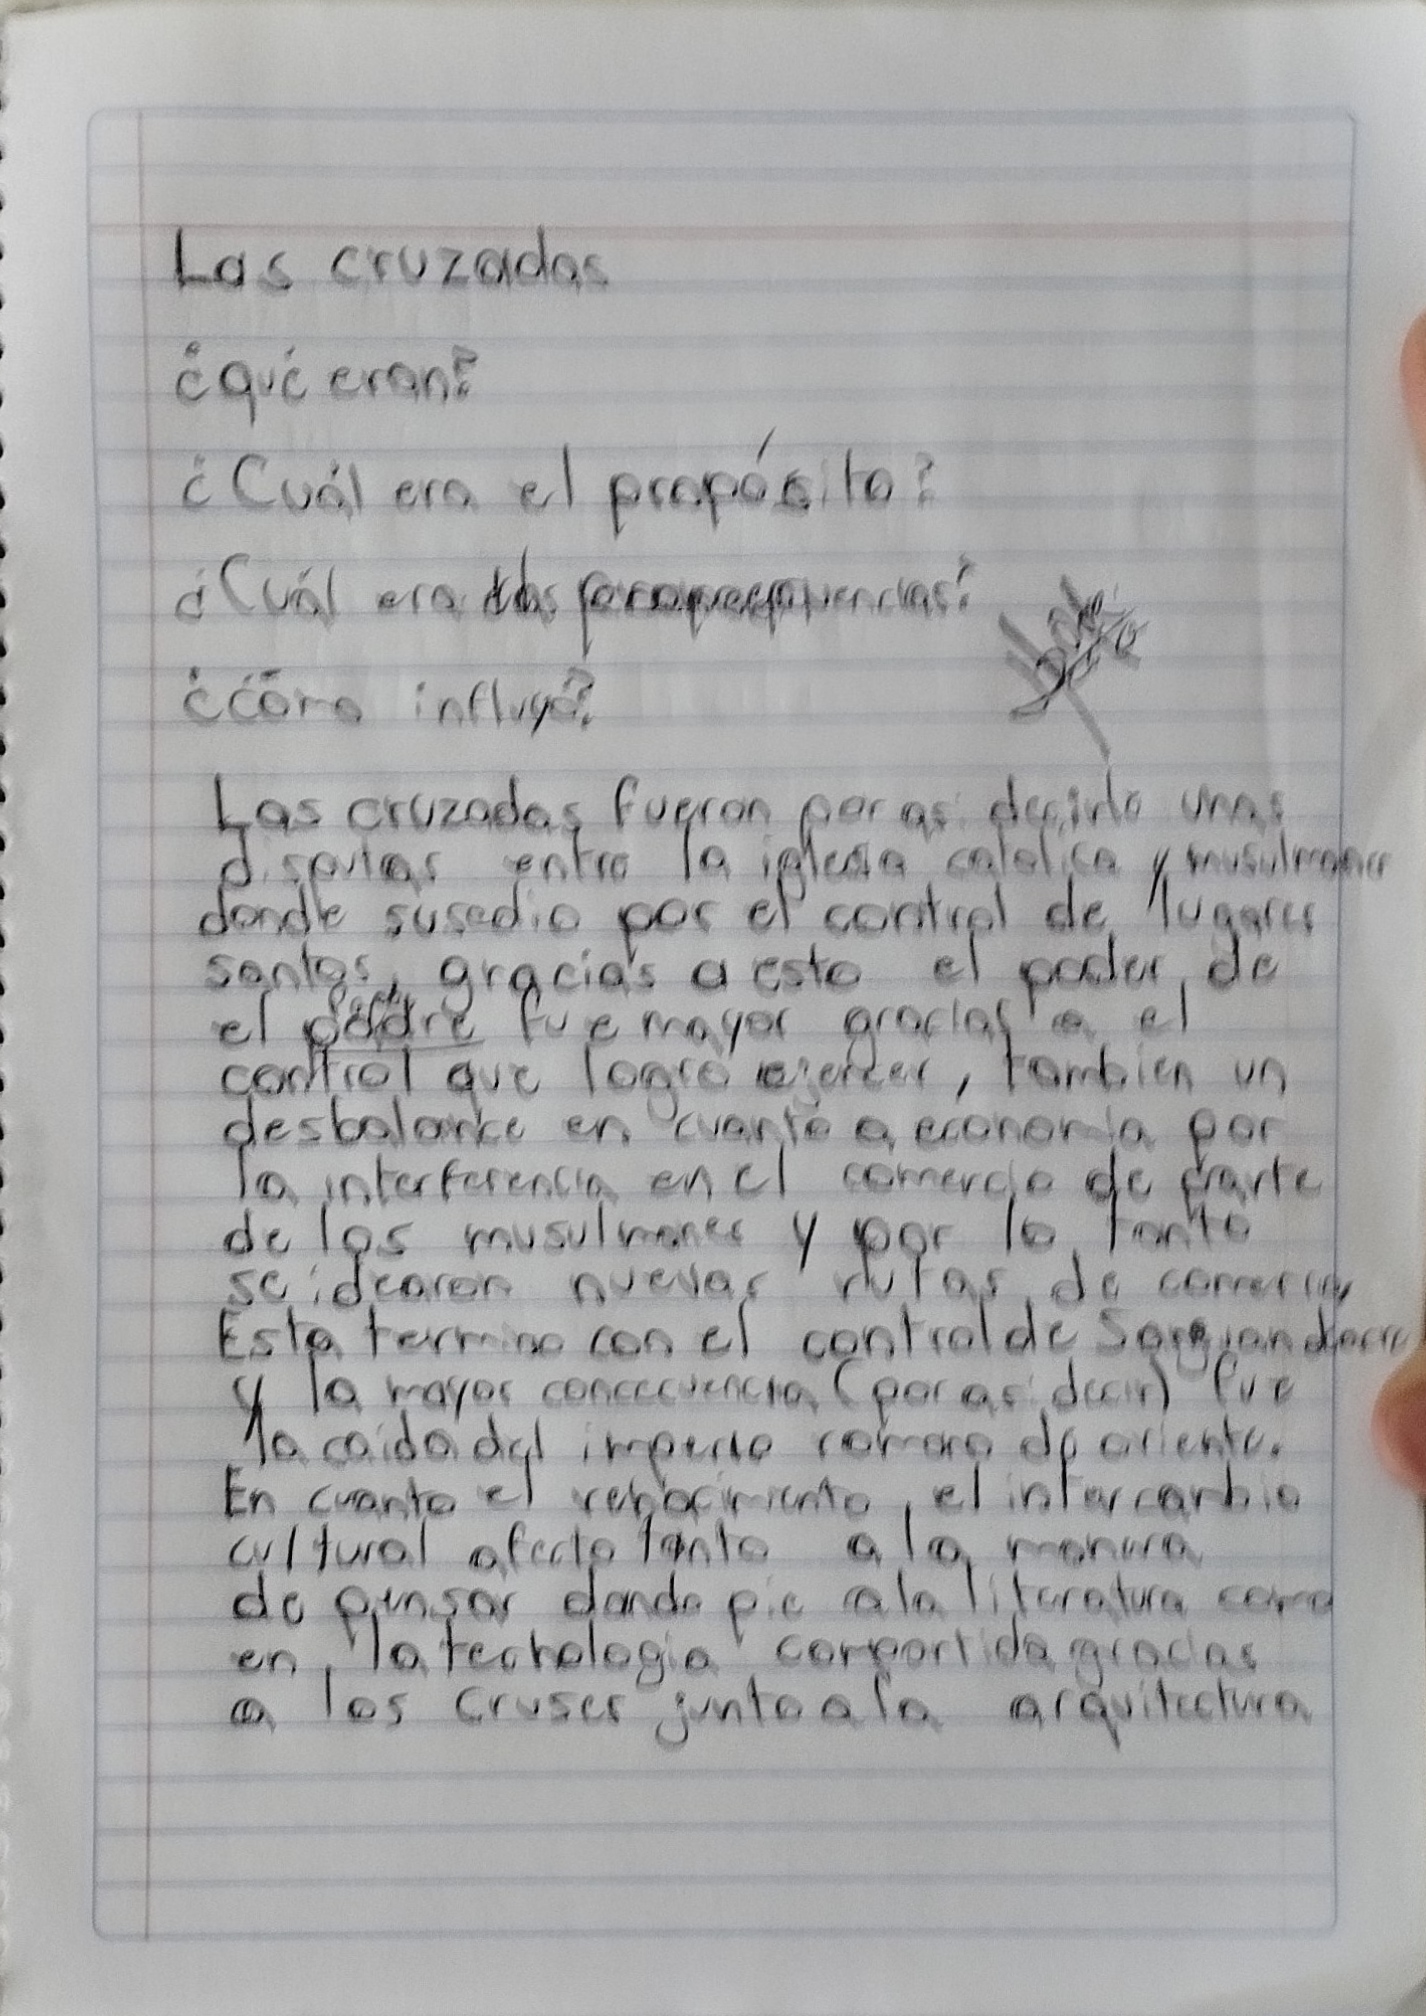 Las cruzadas
¿qué eran?
¿Cuál era el propósito?
¿Cuál era las
¿cómo influyó?
Las cruzadas fueron por asi decirlo unas
disputas entre la iglesia catolica y musulmanes
donde susedio por el control de lugares
santos, gracias a esto el poder de
el padre fue mayor gracias a el
control que logró ejercer, tambien un
desbalance en cuanto a economia por
la interferencia en el comercio de parte
de los musulmanes y por lo tanto
se idearon nuevas rutas de comercio,
Esto termino con el control de San juan de acre
y la mayor concecuencia (por asi decir) fue
la caida del imperio romano de oriente.
En cuanto el renacimiento, el intercambio
cultural afecto tanto a la manera
de pensar dando pie a la literatura como
en la tecnologia compartida gracias
a los cruses junto a la arquitectura